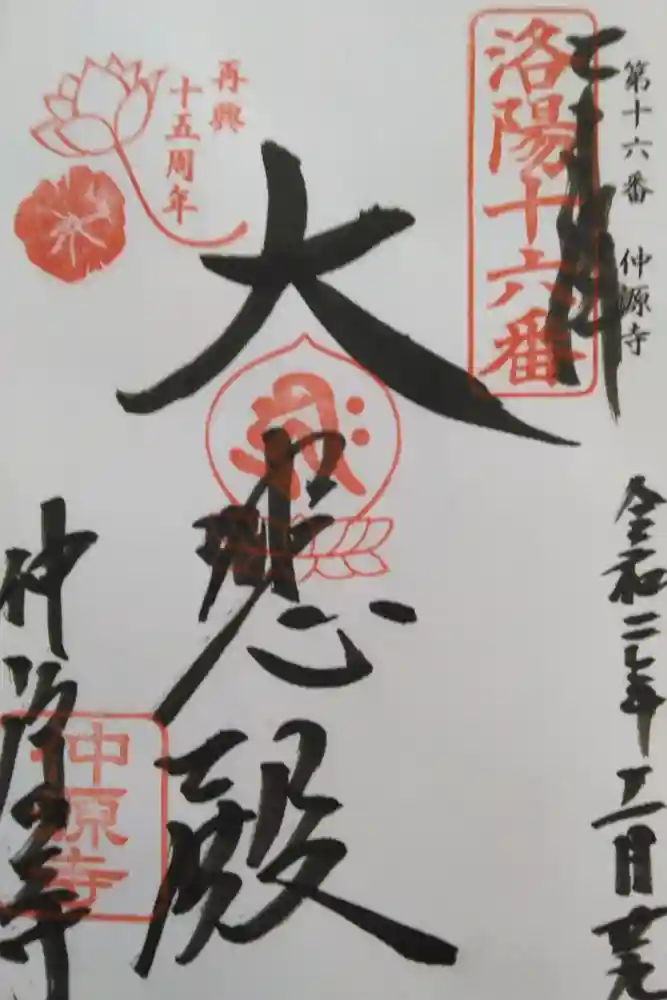 第十六番 仲源寺
洛陽十六番
令和二年十二月廿九
再興
十五周年
大悲殿
仲源寺
仲源寺